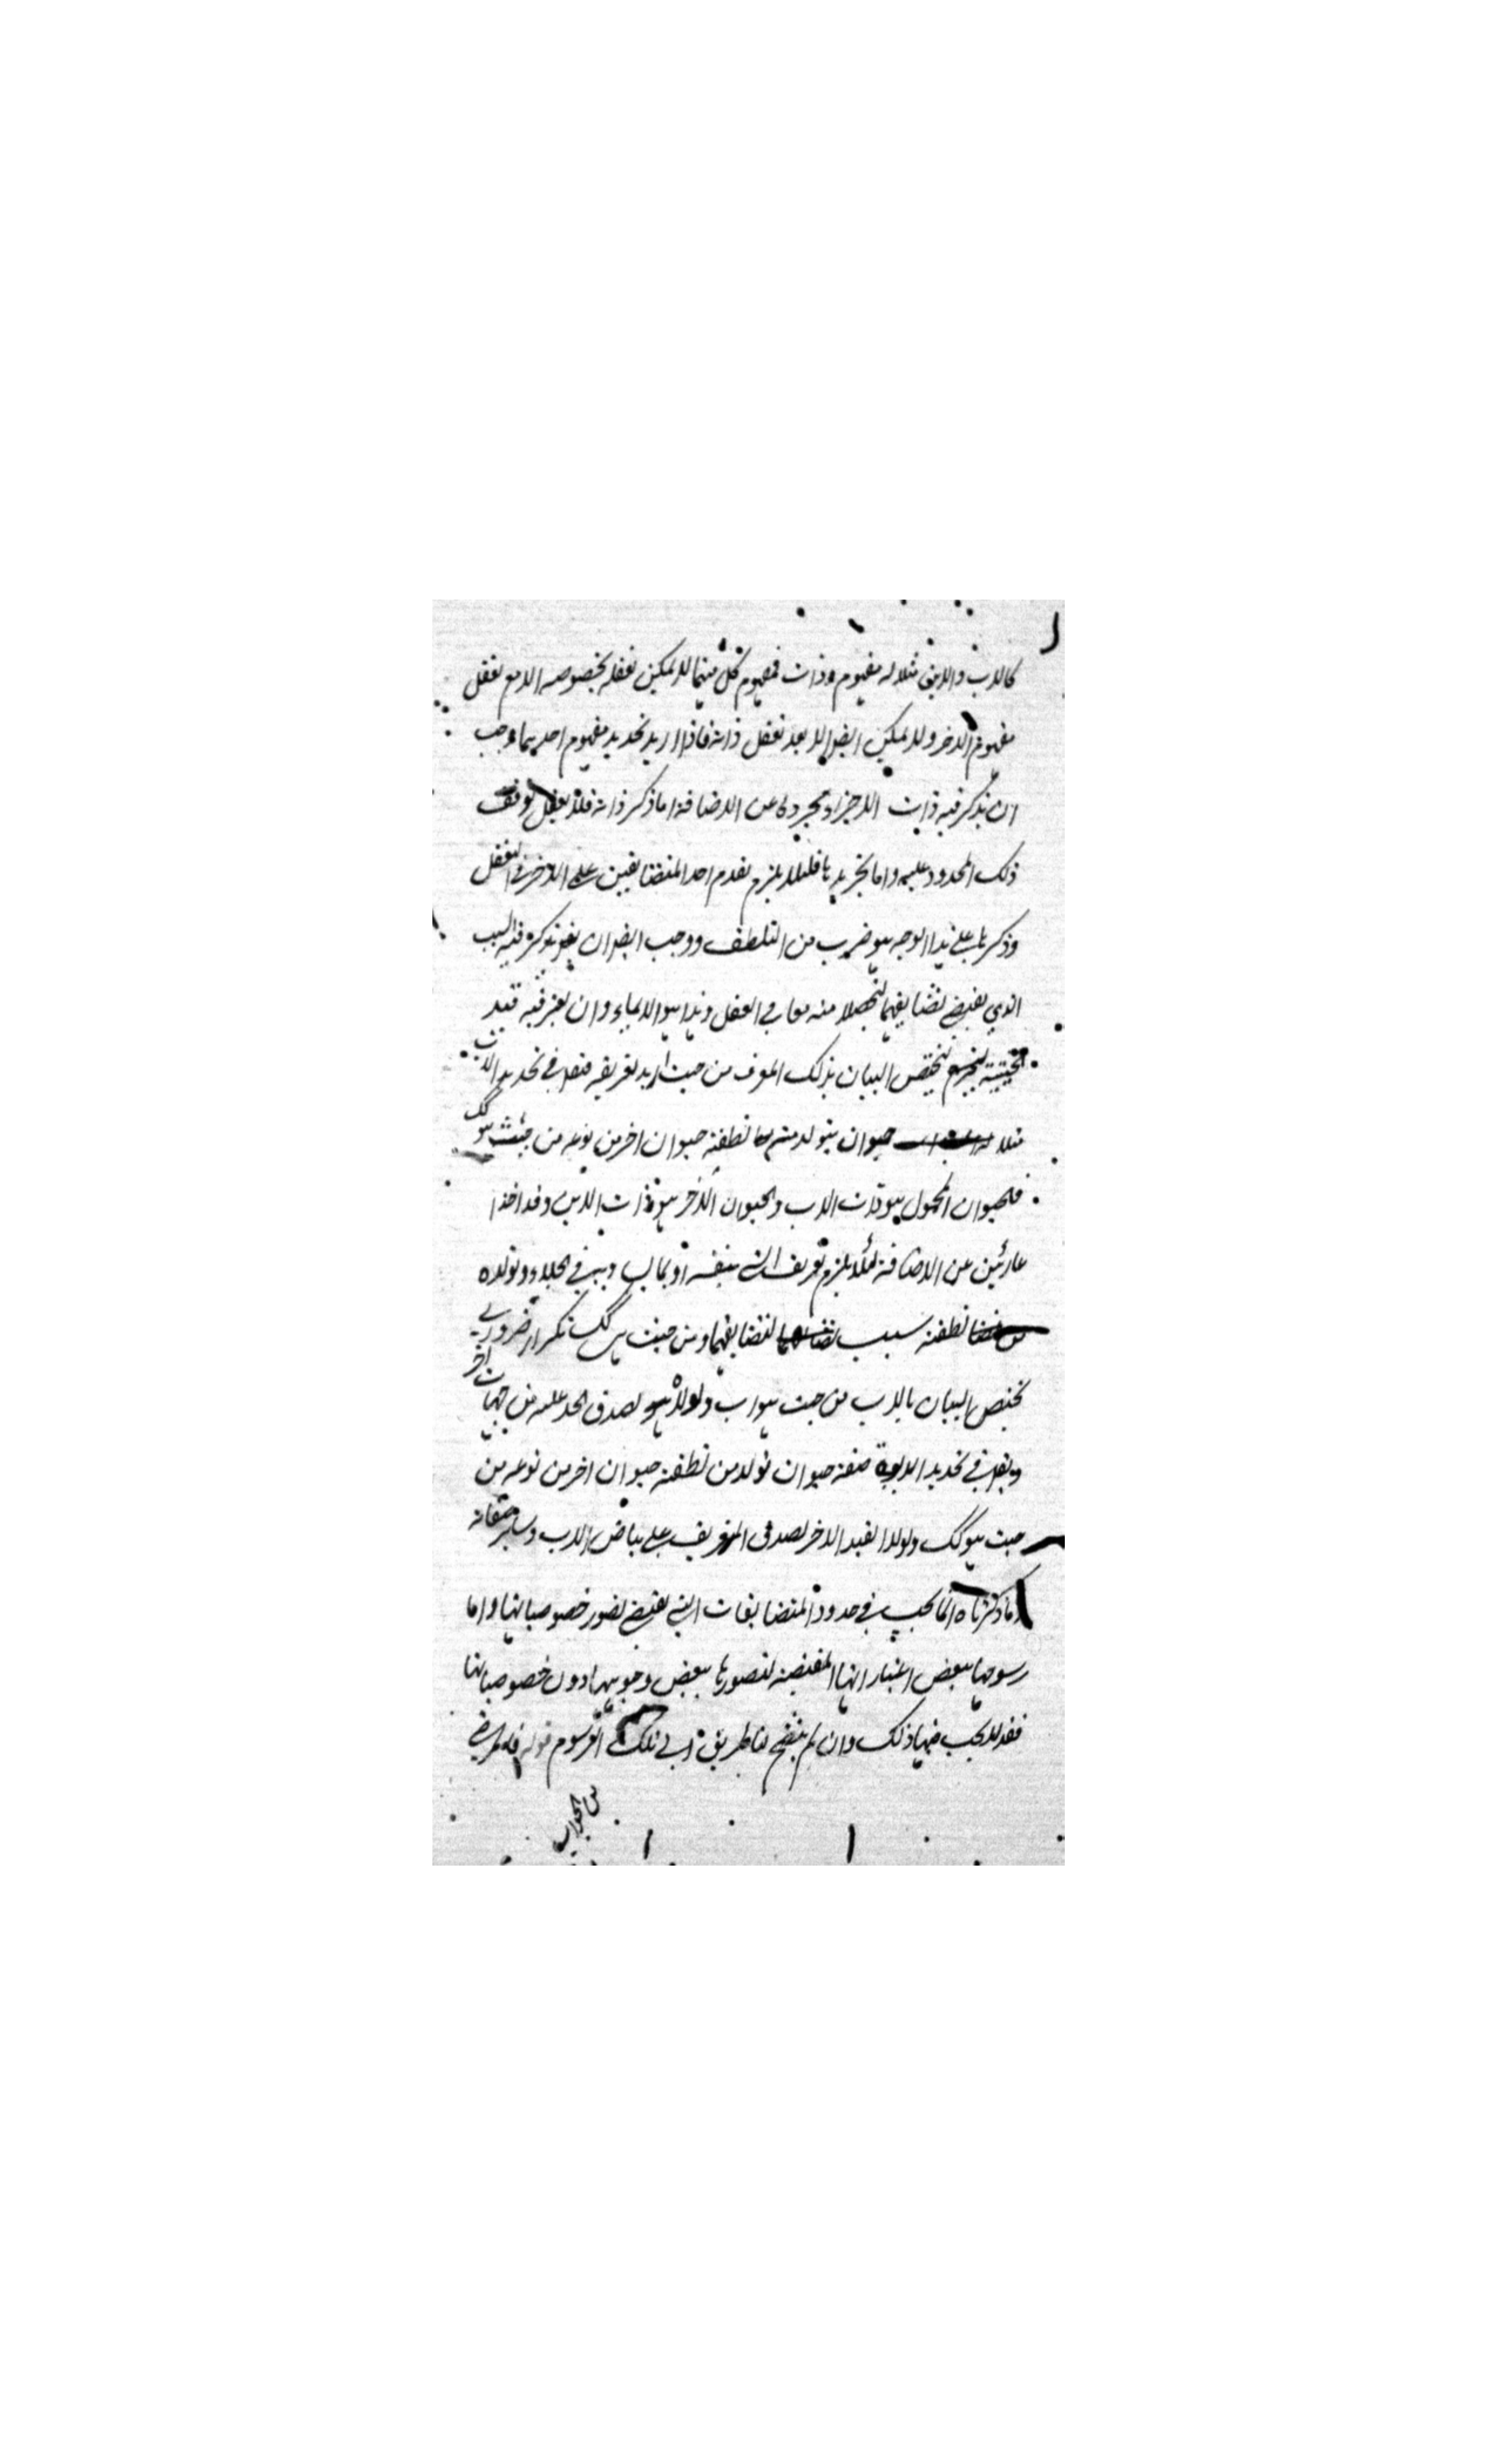 كالاب والابن مثلا له مفهوم وذات فمفهوم كل منهما لا يمكن تعقله بخصوصه الا مع تعقل
مفهوم الاخر ولا يمكن ايضا الا بعد تعقل ذاته فاذا اريد تحديد مفهوم احدهما وجب
ان يذكر فيه ذات الاخر مجردة عن الاضافة اما ذكر ذاته فلان تعقل توقف
ذلك المحدود عليه واما تجريدها فلئلا يلزم تقدم احد المتضايفين على الاخر في التعقل
وذكرها على هذا الوجه هو ضرب من التلطف ووجب ايضا ان يذكر فيه السبب
الذي يقتضي تضايفهما ليتحصلا منه معا في العقل وهذا هو الايماء وان يعتبر فيه قيد
حيثية ليختص البيان بذلك المعرف من حيث اريد تعريفه فيقال في تحديد الاب
مثلا حيوان يتولد من نطفته حيوان اخر من نوعه من حيث هو كك
فالحيوان المحمول هو ذات الاب والحيوان الاخر هو ذات الابن وقد اخذا
عاريين عن الاضافة لئلا يلزم تعريف الشئ بنفسه او بما يساويه في الجلاء وتولده
من نطفته سبب لتضايفهما ومن حيث هو كك تكرار ضروري
يختص البيان بالاب من حيث هو اب ولولاه لصدق الحد عليه من جهات اخر
ويقال في تحديد الابوة صفة حيوان تولد من نطفته حيوان اخر من نوعه من
حيث هو كك ولولا القيد الاخر لصدق التعريف على بياض الاب وسائر صفاته
وما ذكرناه انما يجب في حدود المتضايفات التي تقتضي تصور خصوصياتها واما
رسومها ببعض اعتباراتها المقتضية لتصورها ببعض وجوهها دون خصوصياتها
فقد لا يجب فيها ذلك وان لم يتضح لنا طريق الى تلك الرسوم قوله
من الجواب